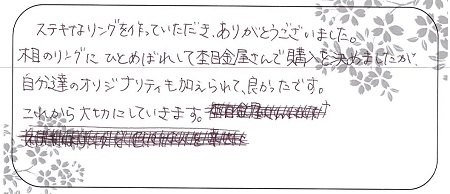 ステキなリングを作っていただき、ありがとうございました。
木目のリングにひとめぼれして杢目金屋さんで購入を決めましたが、
自分達のオリジナリティも加えられて、良かったです。
これから大切にしていきます。